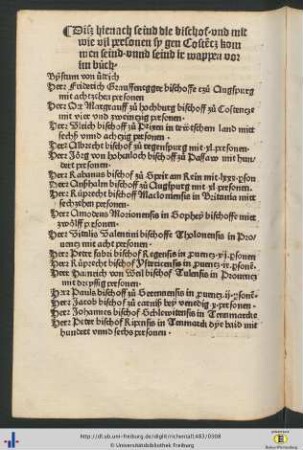 Disz hienach seind die bischof vnd mit
wie vil personen sy gen Costencz kom
men seind vnnd seind ir wappen vor
im buch
Bystum von ülrich
Herr Friderich Grauffenegger bischoffe czü Augspurg
mit achtzehen personen
Herr Ot Margrauff zü hochburg bischoff zü Costencze
mit vier vnd zweintzig personen
Herr Vlrich bischoff zü Prixen in teütschen land mitt
sechs vnnd achczig personen
Herr Albrecht bischof zü regenspurg mit xl personen
Herr Jörg von hohenloch bischoff zü Passaw mit hun
dert personen
Herr Rabanus bischof zü Speir am Rein mit lxxx pson
Herr Anßhalm bischoff zü Augspurg mit xl personen
Herr Rüprecht bischoff Maclouiensis in Britania mitt
sechzehen personen
Herr Amodeus Morionensis in Sophey bischoffe mitt
zwölff personen
Herr Vitalis Valentini bischoffe Tholonensis in Pro
uentz mit acht personen
Herr Peter fabri bischof Regensis in prouentz vj personen
Herr Rüprecht bischof Ystricensis in prouentz ix psone
Herr Hainrich von Weil bischof Tulensis in Prouentz
mit dryssig personen
Herr Pauls bischoff zü Seenensis in prouentz ij psone
Herr Jacob bischof zü carnih bey venedig x personen
Herr Johannes bischof Schleswitensis in Tennmarcke
Herr Peter bischof Ripensis in Tenmarck dye baid mit
hundert vnnd sechs personen
http://dl.ub.uni-freiburg.de/diglit/richental1483/0308
© Universitätsbibliothek Freiburg